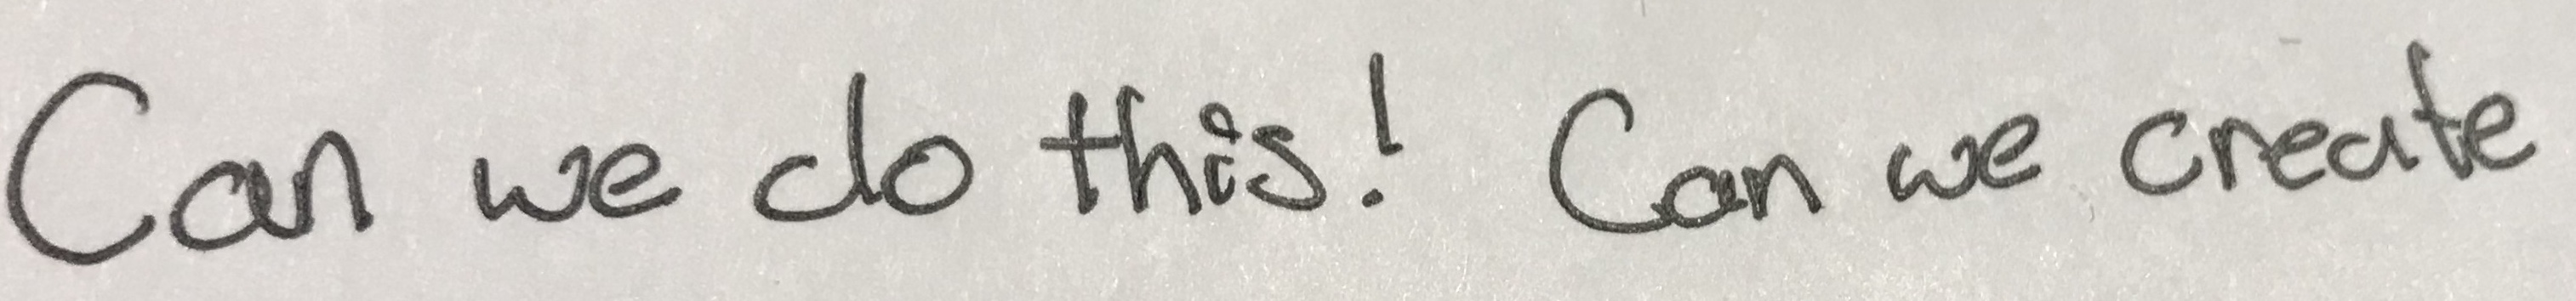 Can we do this! Can we create